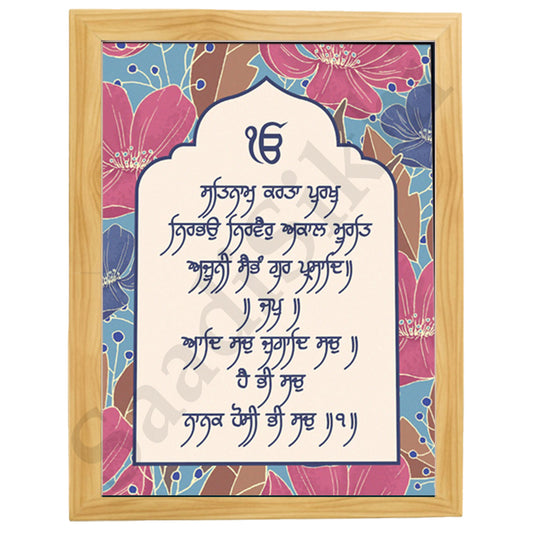 ੴ
ਸਤਿਨਾਮੁ ਕਰਤਾ ਪੁਰਖੁ
ਨਿਰਭਓ ਨਿਰਵੈਰੁ ਅਕਾਲ ਮੂਰਤਿ
ਅਜੂਨੀ ਸੈਭੰ ਗੁਰ ਪ੍ਰਸਾਦਿ॥
॥ ਜਪੁ ॥
ਆਦਿ ਸਚੁ ਜੁਗਾਦਿ ਸਚੁ ॥
ਹੈ ਭੀ ਸਚੁ
ਨਾਨਕ ਹੋਸੀ ਭੀ ਸਚੁ ॥੧॥